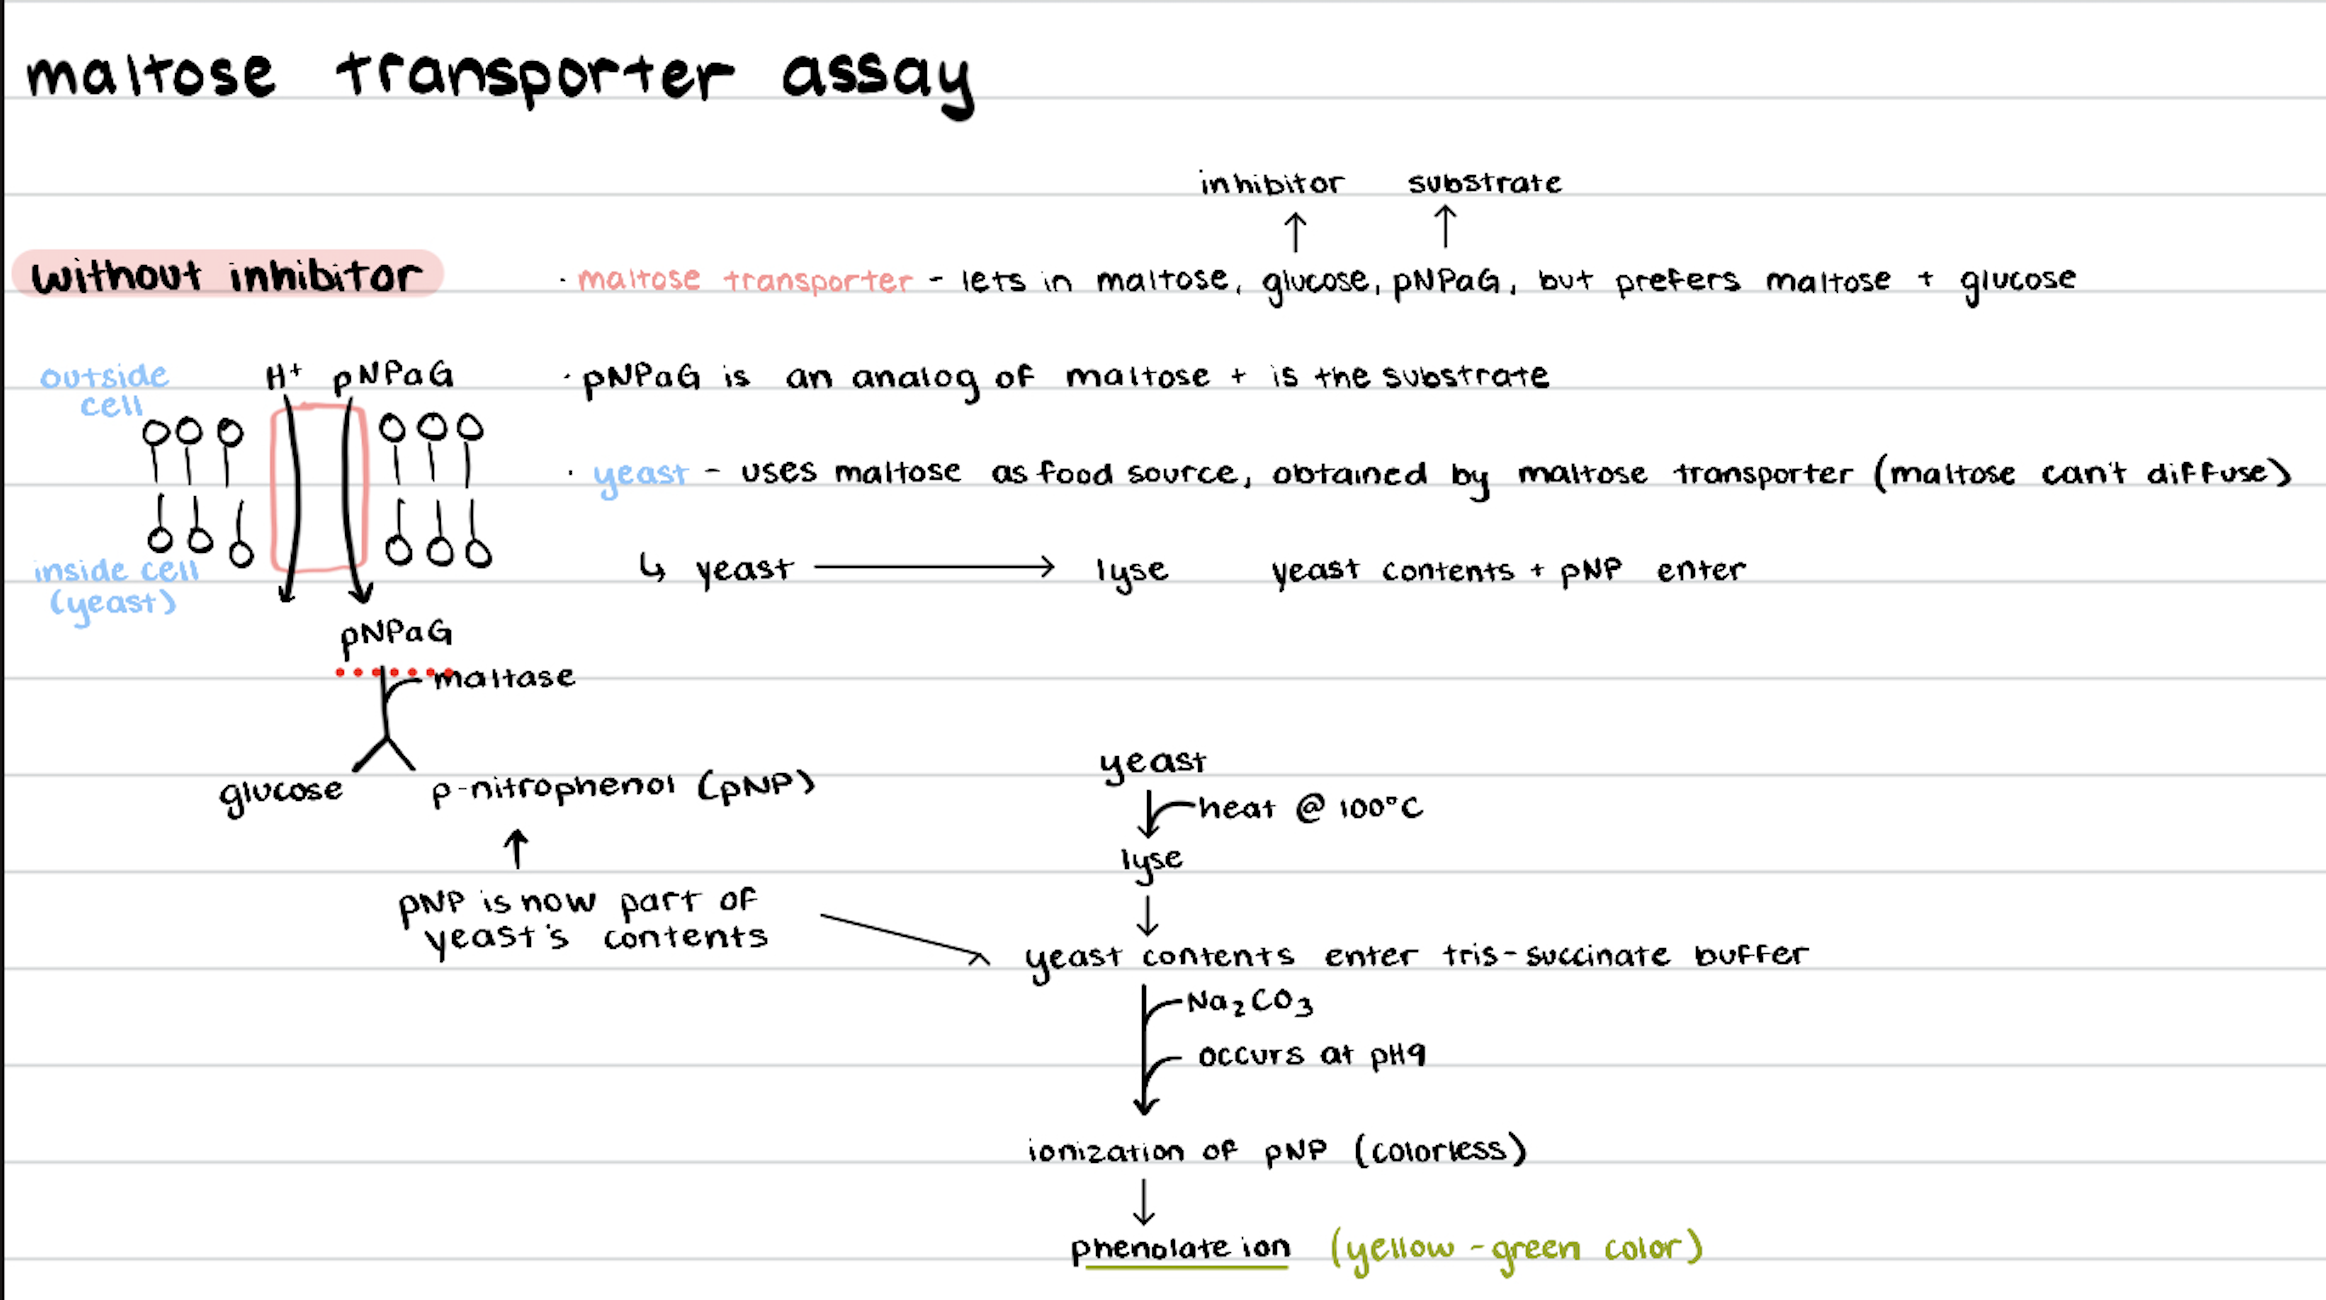 maltose transporter assay
inhibitor substrate
without inhibitor
· maltose transporter - lets in maltose, glucose, pNPaG, but prefers maltose + glucose
outside cell
H+ pNPaG
· pNPaG is an analog of maltose + is the substrate
· yeast - uses maltose as food source, obtained by maltose transporter (maltose can't diffuse)
inside cell
(yeast)
↳ yeast → lyse yeast contents + pNP enter
pNPaG
maltase
glucose p-nitrophenol (pNP)
pNP is now part of
yeast's contents
yeast
heat @ 100°C
lyse
yeast contents enter tris-succinate buffer
Na2CO3
occurs at pH9
ionization of pNP (colorless)
phenolate ion (yellow-green color)